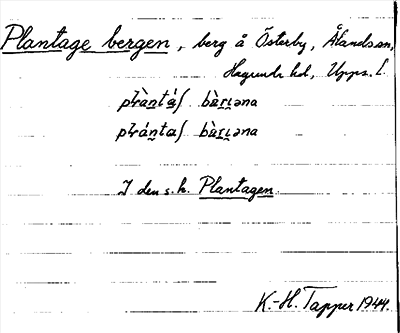 Plantage bergen, berg å Österby, Ålands sn,
Hagunda hd, Upps. l.
plàntáʃ bæ̀rɩəna
plántaʃ bæ̀rɩəna
I den s. k. Plantagen.
K.-H. Tapper 1944.